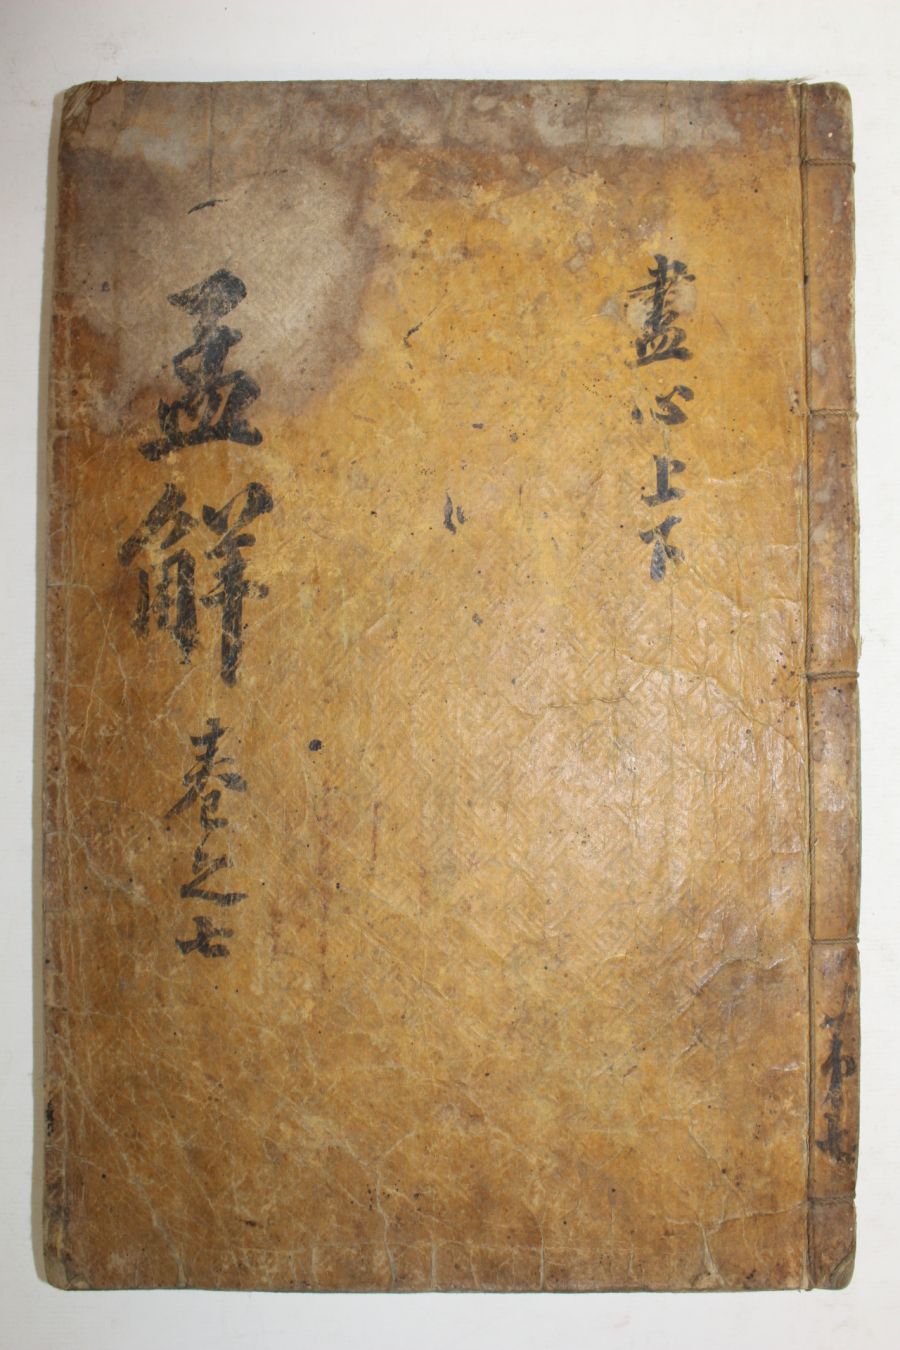 第七
盡心上下
孟解 卷之七